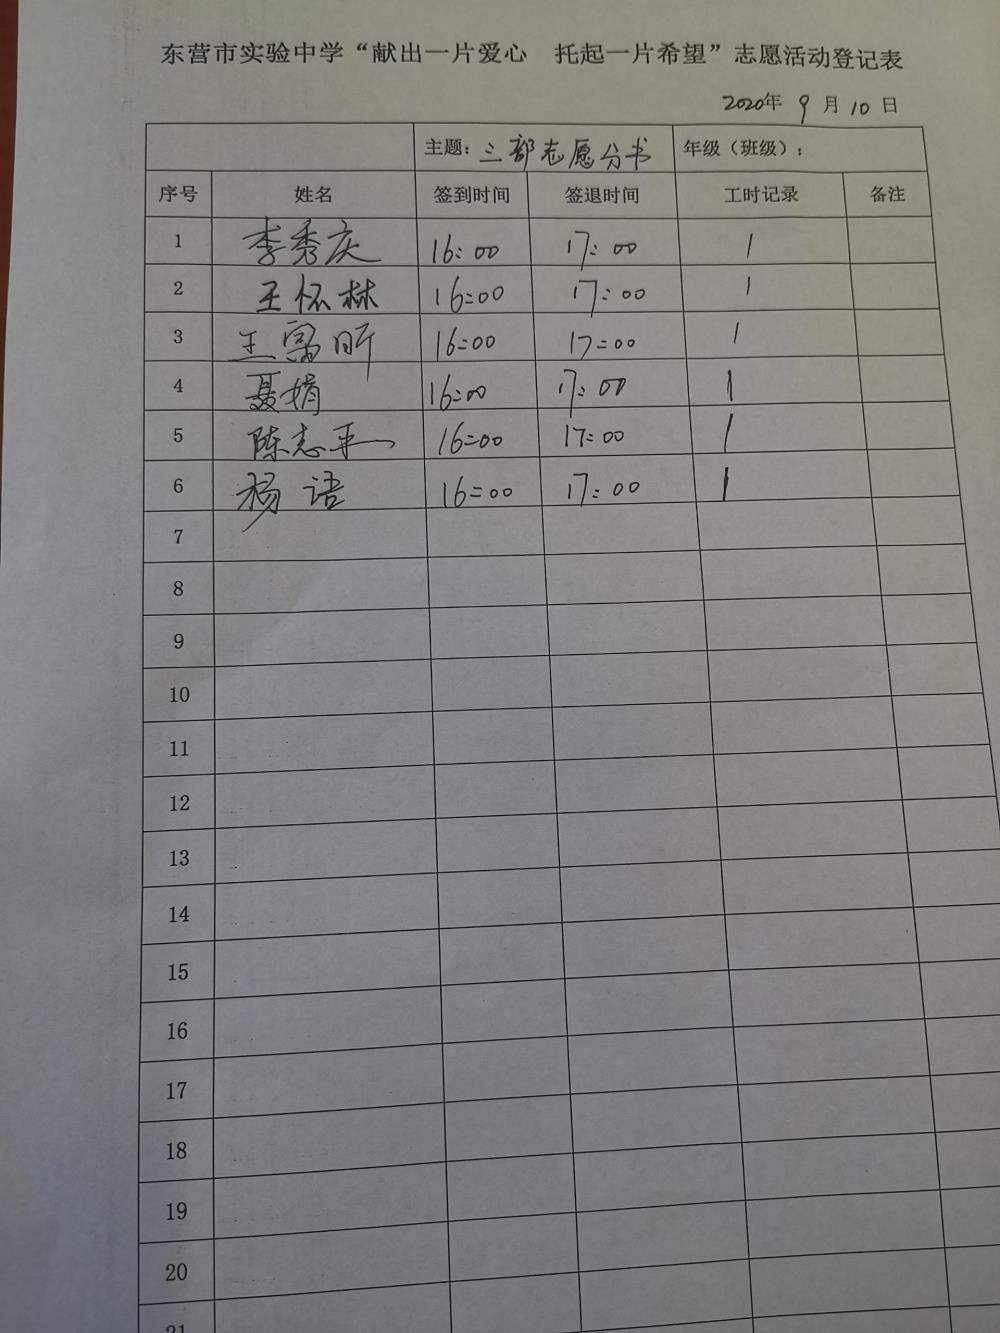 东营市实验中学“献出一片爱心 托起一片希望”志愿活动登记表
2020年 9 月 10 日
主题: 三部志愿分书 年级（班级）:
序号 姓名 签到时间 签退时间 工时记录 备注
1 李秀庆 16:00 17:00 1
2 王怀林 16:00 17:00 1
3 王 昕 16:00 17:00 1
4 聂娟 16:00 17:00 1
5 陈志平 16:00 17:00 1
6 杨语 16:00 17:00 1
7
8
9
10
11
12
13
14
15
16
17
18
19
20
21